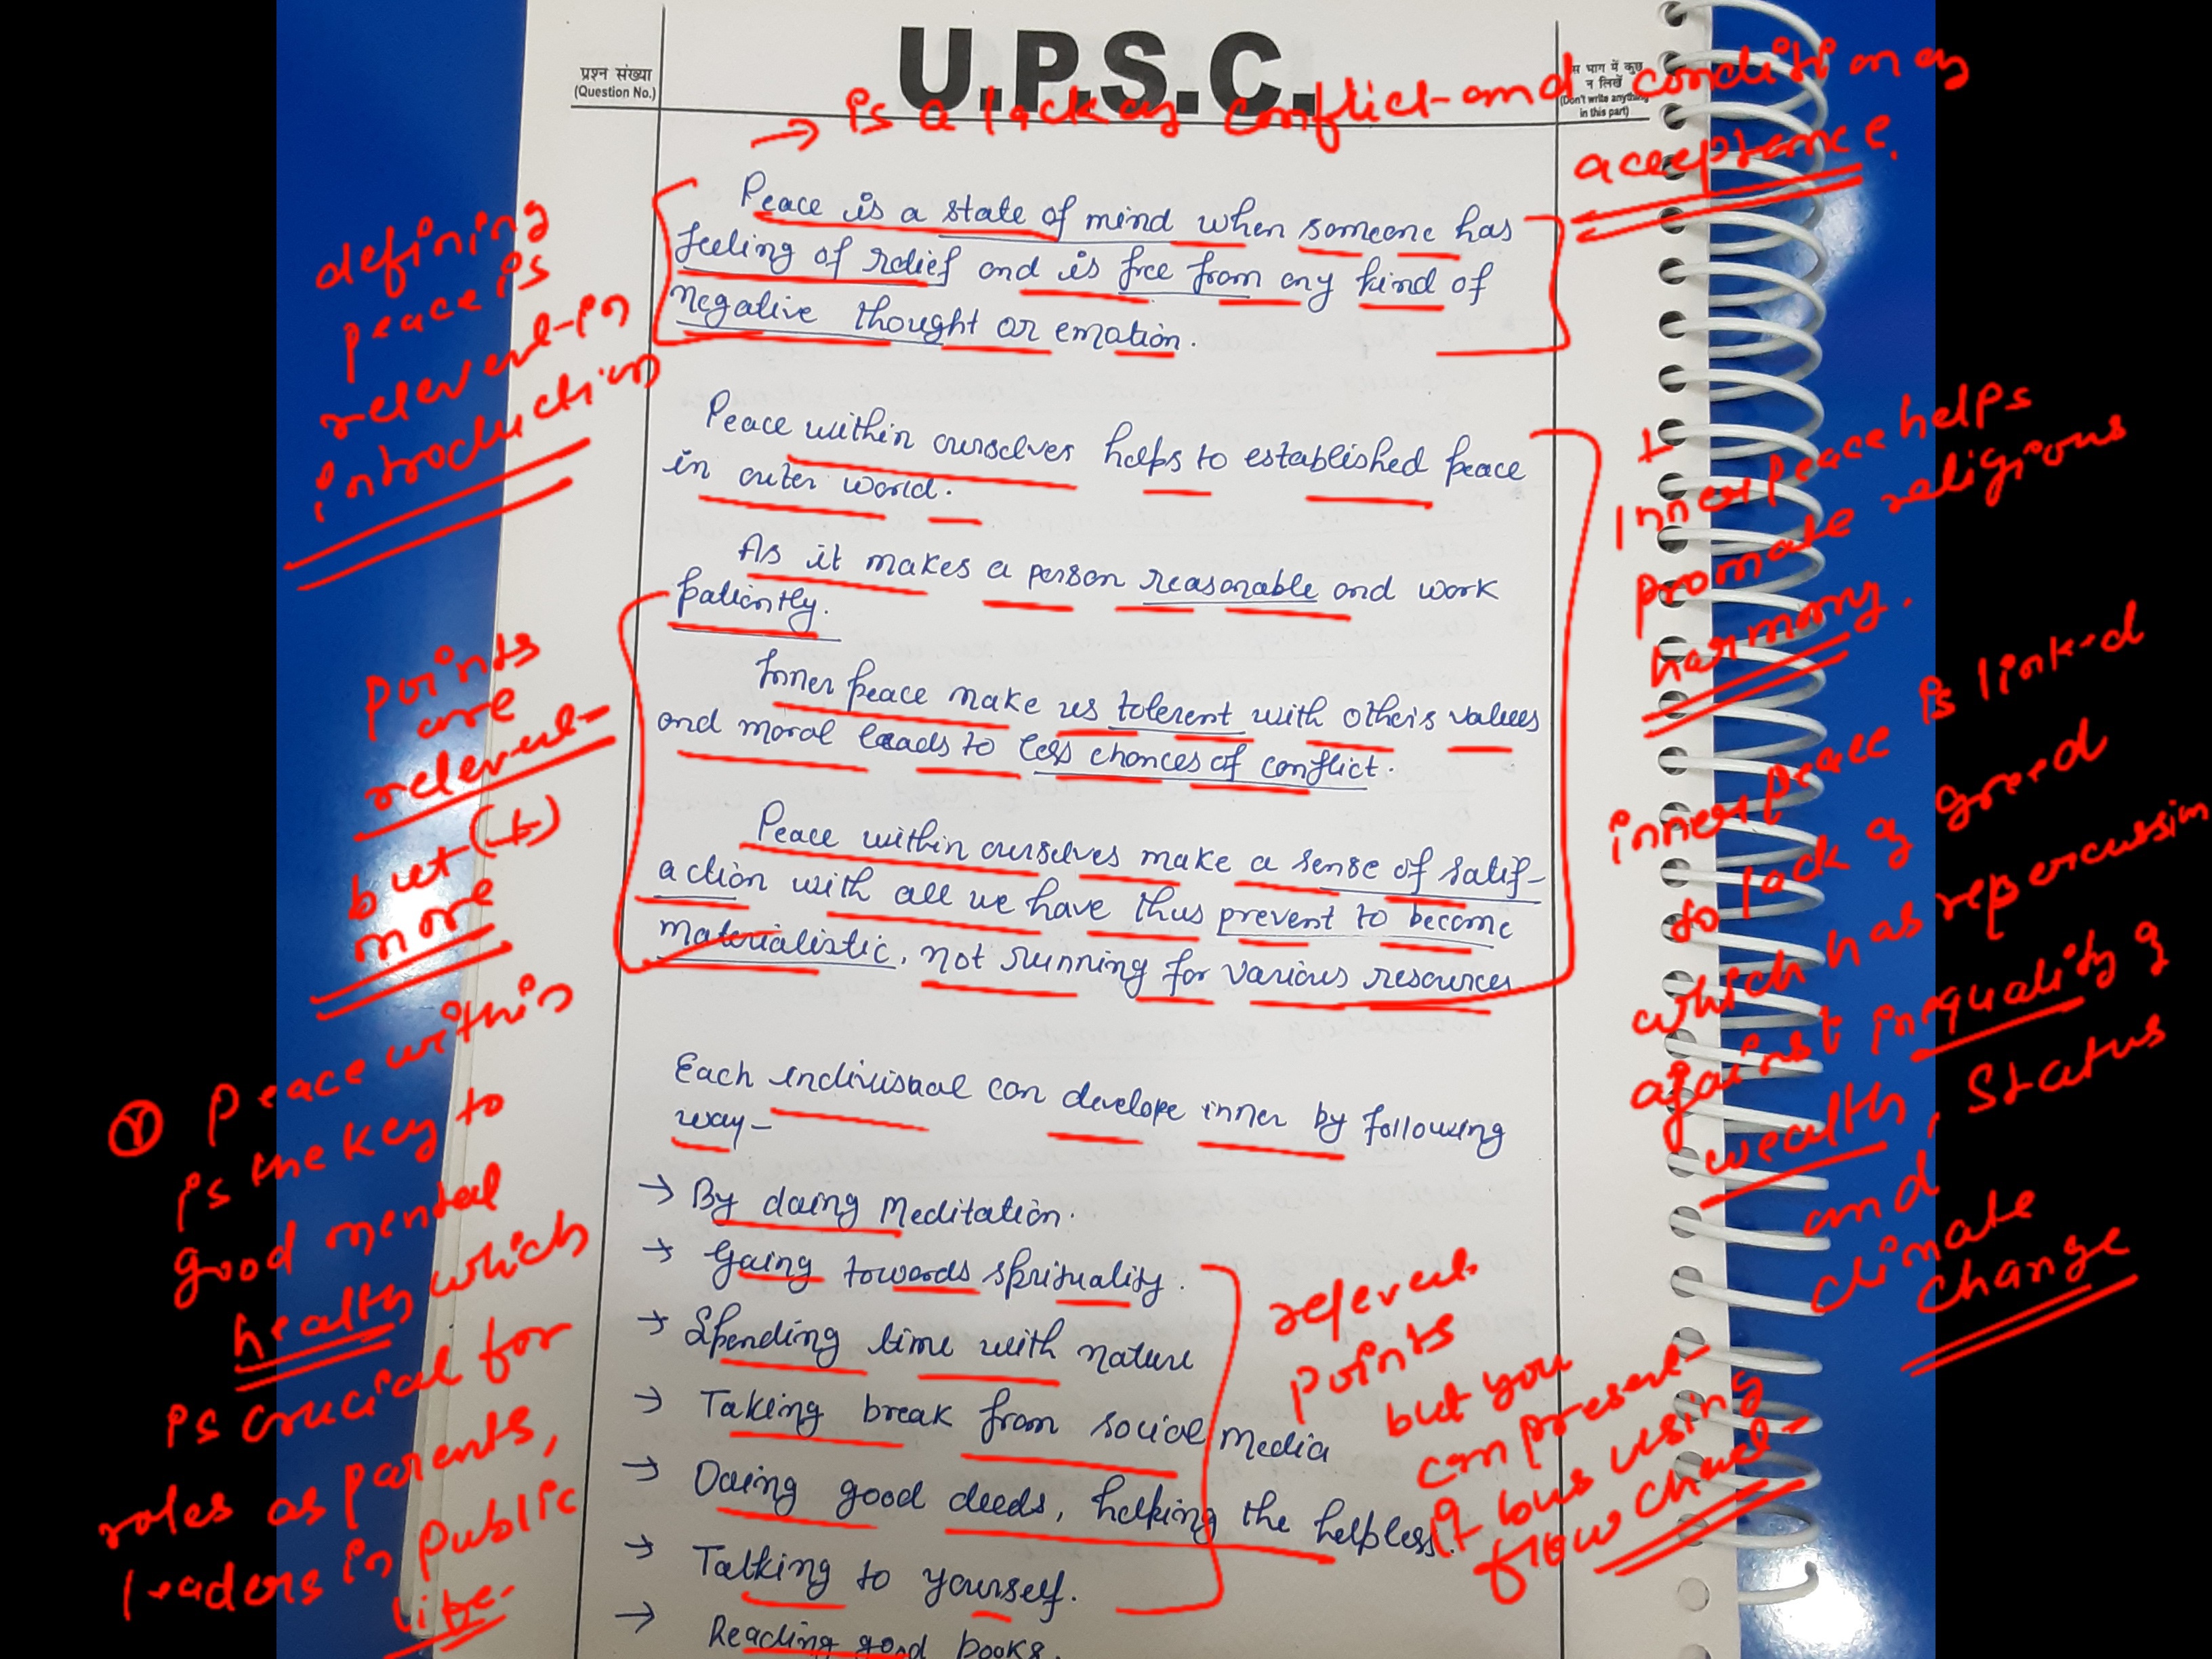 U.P.S.C.
प्रश्न संख्या
(Question No.)
स भाग में कुछ
न लिखें
(Don't write anything
in this part)
→ is a lack of conflict and condition of
acceptance.
Peace is a state of mind when someone has
feeling of relief and is free from any kind of
negative thought or emotion.
defining
peace is
relevent in
introduction
Peace within ourselves helps to established peace
in outer world.
As it makes a person reasonable and work
patiently.
Inner peace make us tolerent with other's values
and moral leads to less chances of conflict.
Peace within ourselves make a sense of satisf-
action with all we have thus prevent to become
materialistic, not running for various resources
points
are
relevent
but (+)
more
+
Inner peace helps
promote religious
harmony.
inner peace is linked
to lack of greed
which has repercussion
against inequality of
wealth, status
and
climate
change
Each indivisual can develope inner by following
way-
→ By doing Meditation.
→ Going towards sprituality.
→ Spending time with nature
→ Taking break from social media
→ Doing good deeds, helking the helpless.
→ Talking to yourself.
→ Reading good books.
Peace within
is the key to
good mental
health which
is crucial for
roles as parents,
leaders in public
life.
relevent
points
but you
can present
it by using
flow chart